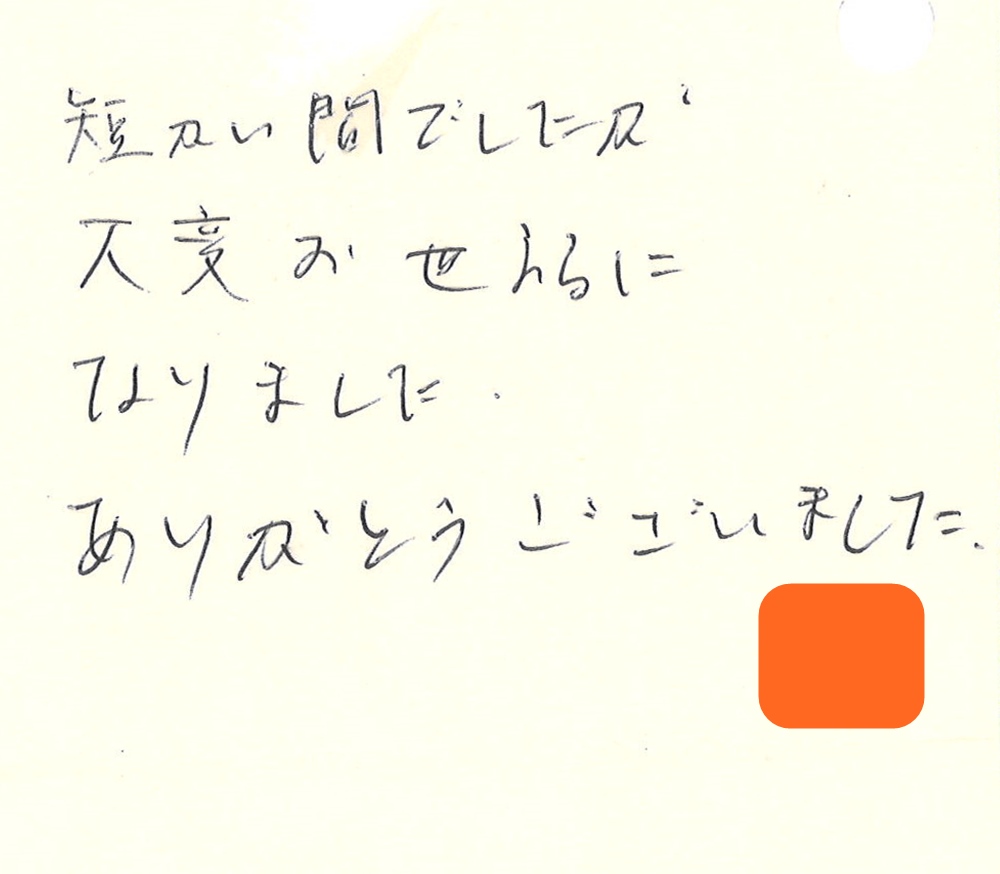 短かい間でしたが
大変おせわに
なりました.
ありがとうございました.